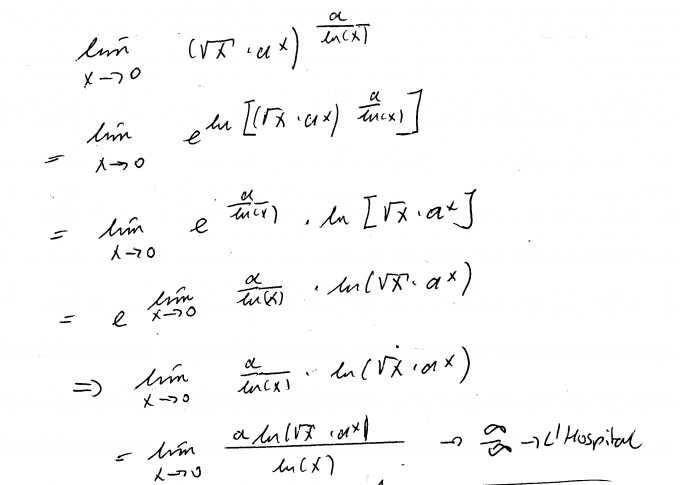 lim x→0 (√x · a^x)^(a/ln(x))
= lim x→0 e^(ln [(√x · a^x)^(a/ln(x))])
= lim x→0 e^(a/ln(x) · ln [√x · a^x])
= e^(lim x→0 a/ln(x) · ln(√x · a^x))
=> lim x→0 a/ln(x) · ln(√x · a^x)
= lim x→0 (a ln(√x · a^x))/(ln(x)) → ∞/∞ → L'Hospital